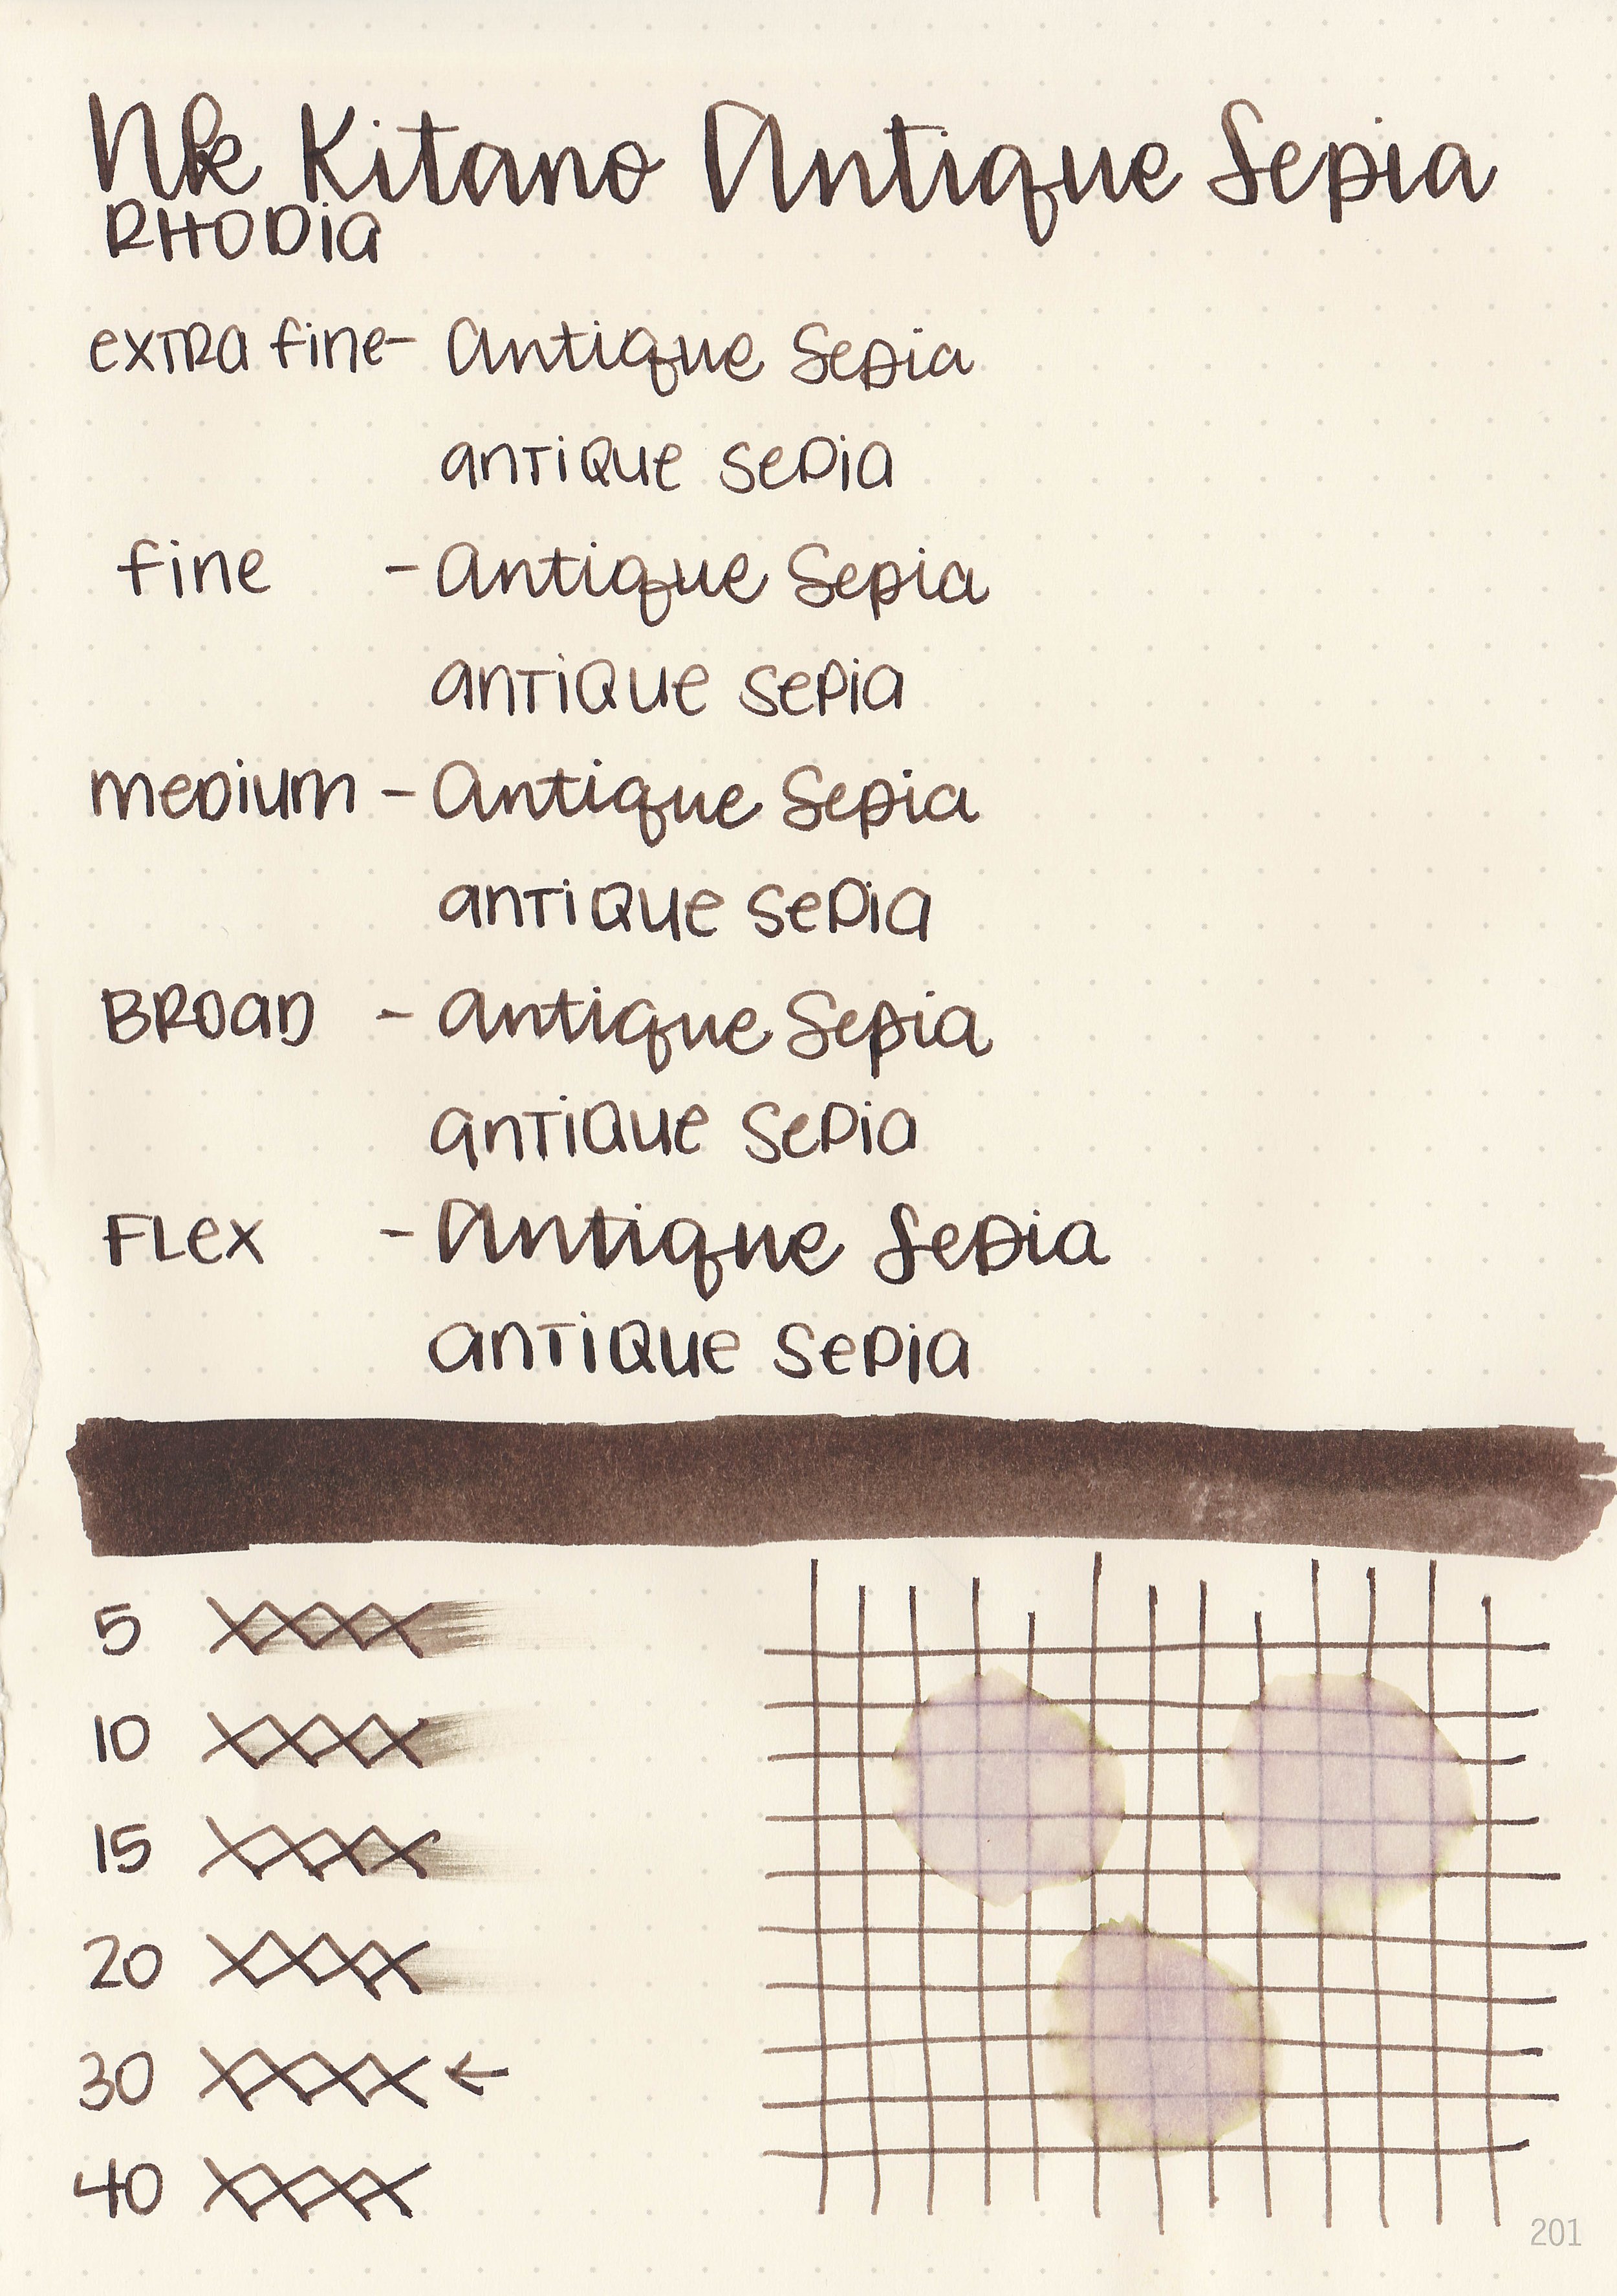 Nk Kitano Antique Sepia
RHODia
exTRa fine- Antique Sepia
anTiQue sepia
fine - Antique Sepia
anTiQue sepia
meDium - Antique Sepia
anTiQue sepia
BROaD - Antique Sepia
anTiQue sepia
FLex - Antique Sepia
anTiQue sepia
5 XXXX
10 XXXX
15 XXXX
20 XXXX
30 XXXX ←
40 XXXX
201